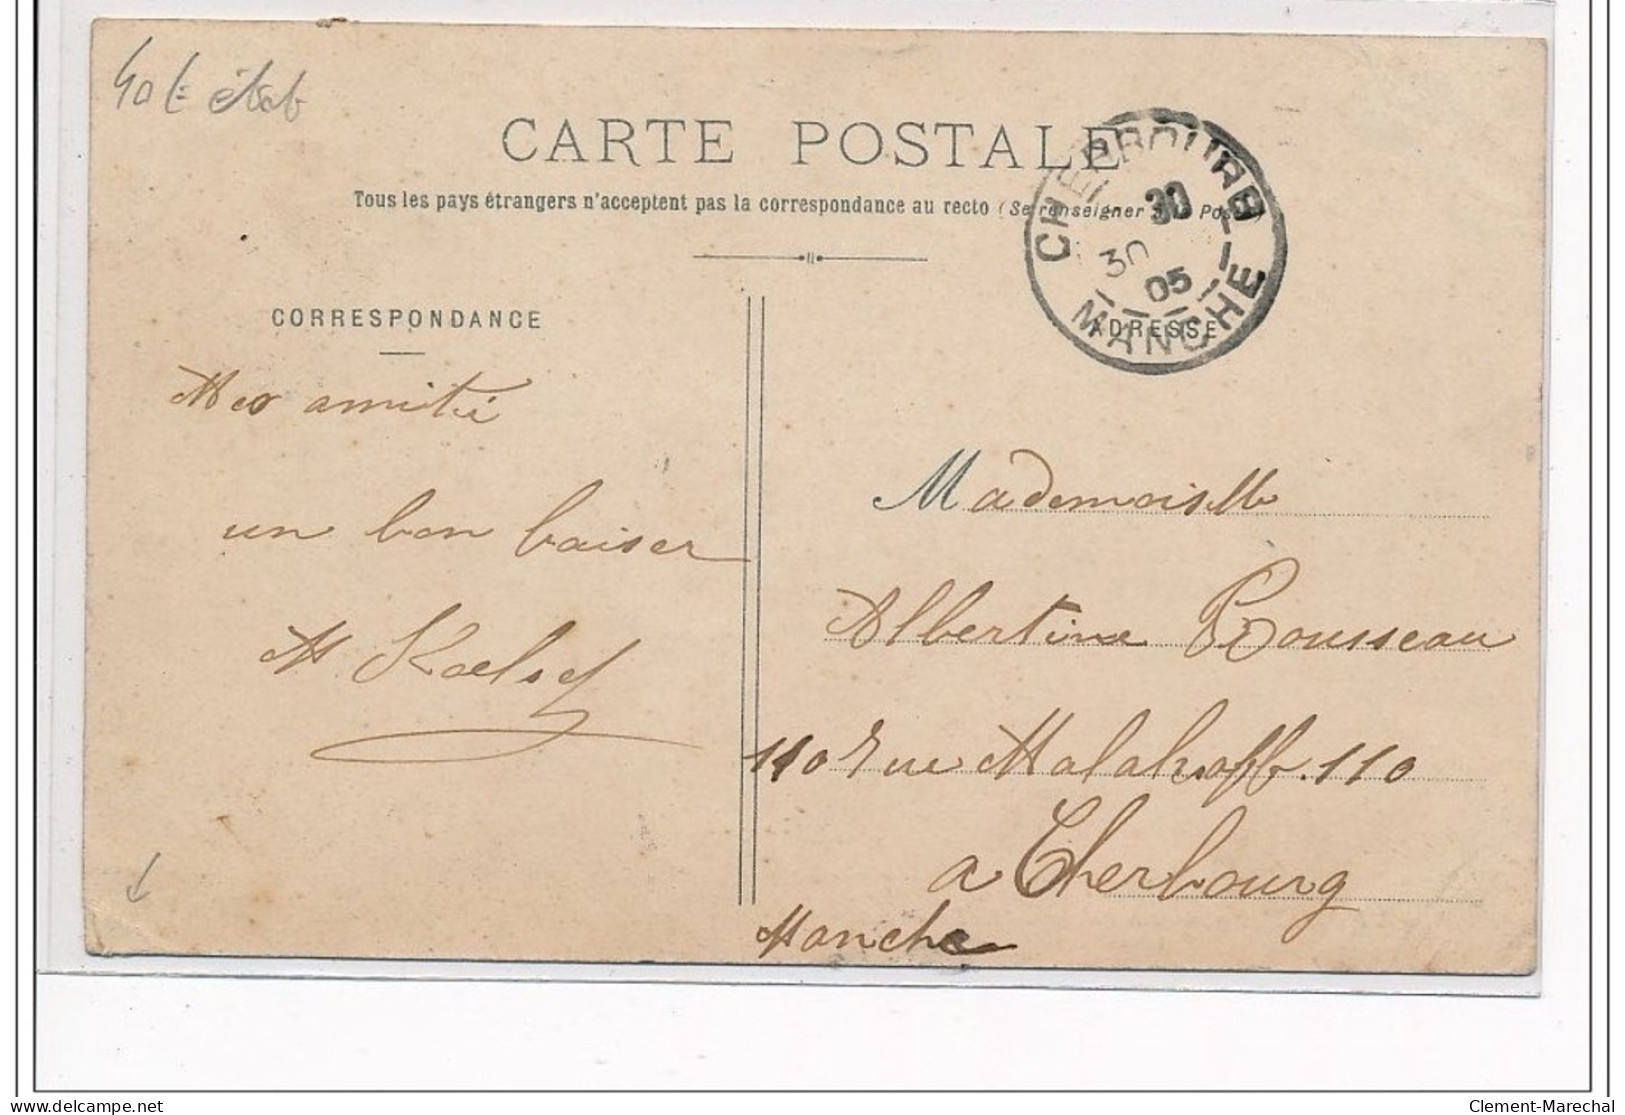 CARTE POSTALE
Tous les pays étrangers n'acceptent pas la correspondance au recto (Se renseigner
CHERBOURG
30
30
05
MANCHE
CORRESPONDANCE
ADRESSE
Mes amitié
un bon baiser
M
Mademoiselle
Albertine Rousseau
110 rue Malakoff. 110
a Cherbourg
Manche
delcampe.net
Clement-Marechal